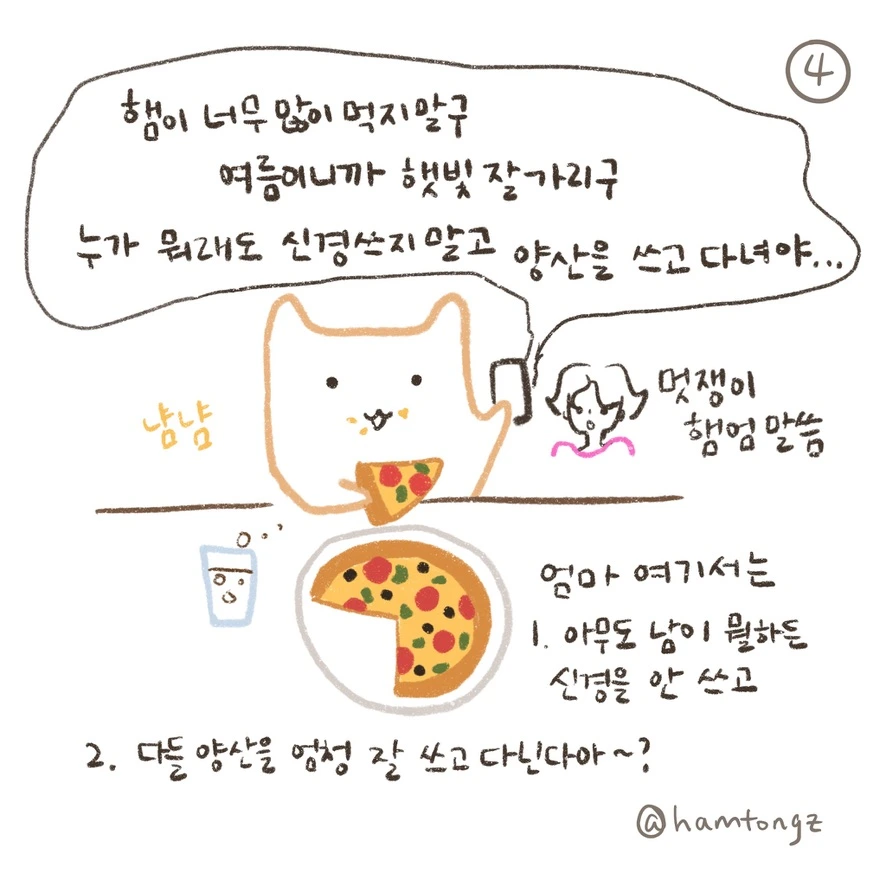 4
햄이 너무 많이 먹지말구
여름이니까 햇빛 잘가리구
누가 뭐래도 신경쓰지말고 양산을 쓰고 다녀야...
냠냠
멋쟁이
햄엄말씀
엄마 여기서는
1. 아무도 남이 뭘하든
신경을 안 쓰고
2. 다들 양산을 엄청 잘 쓰고 다닌다아~?
@hamtongz